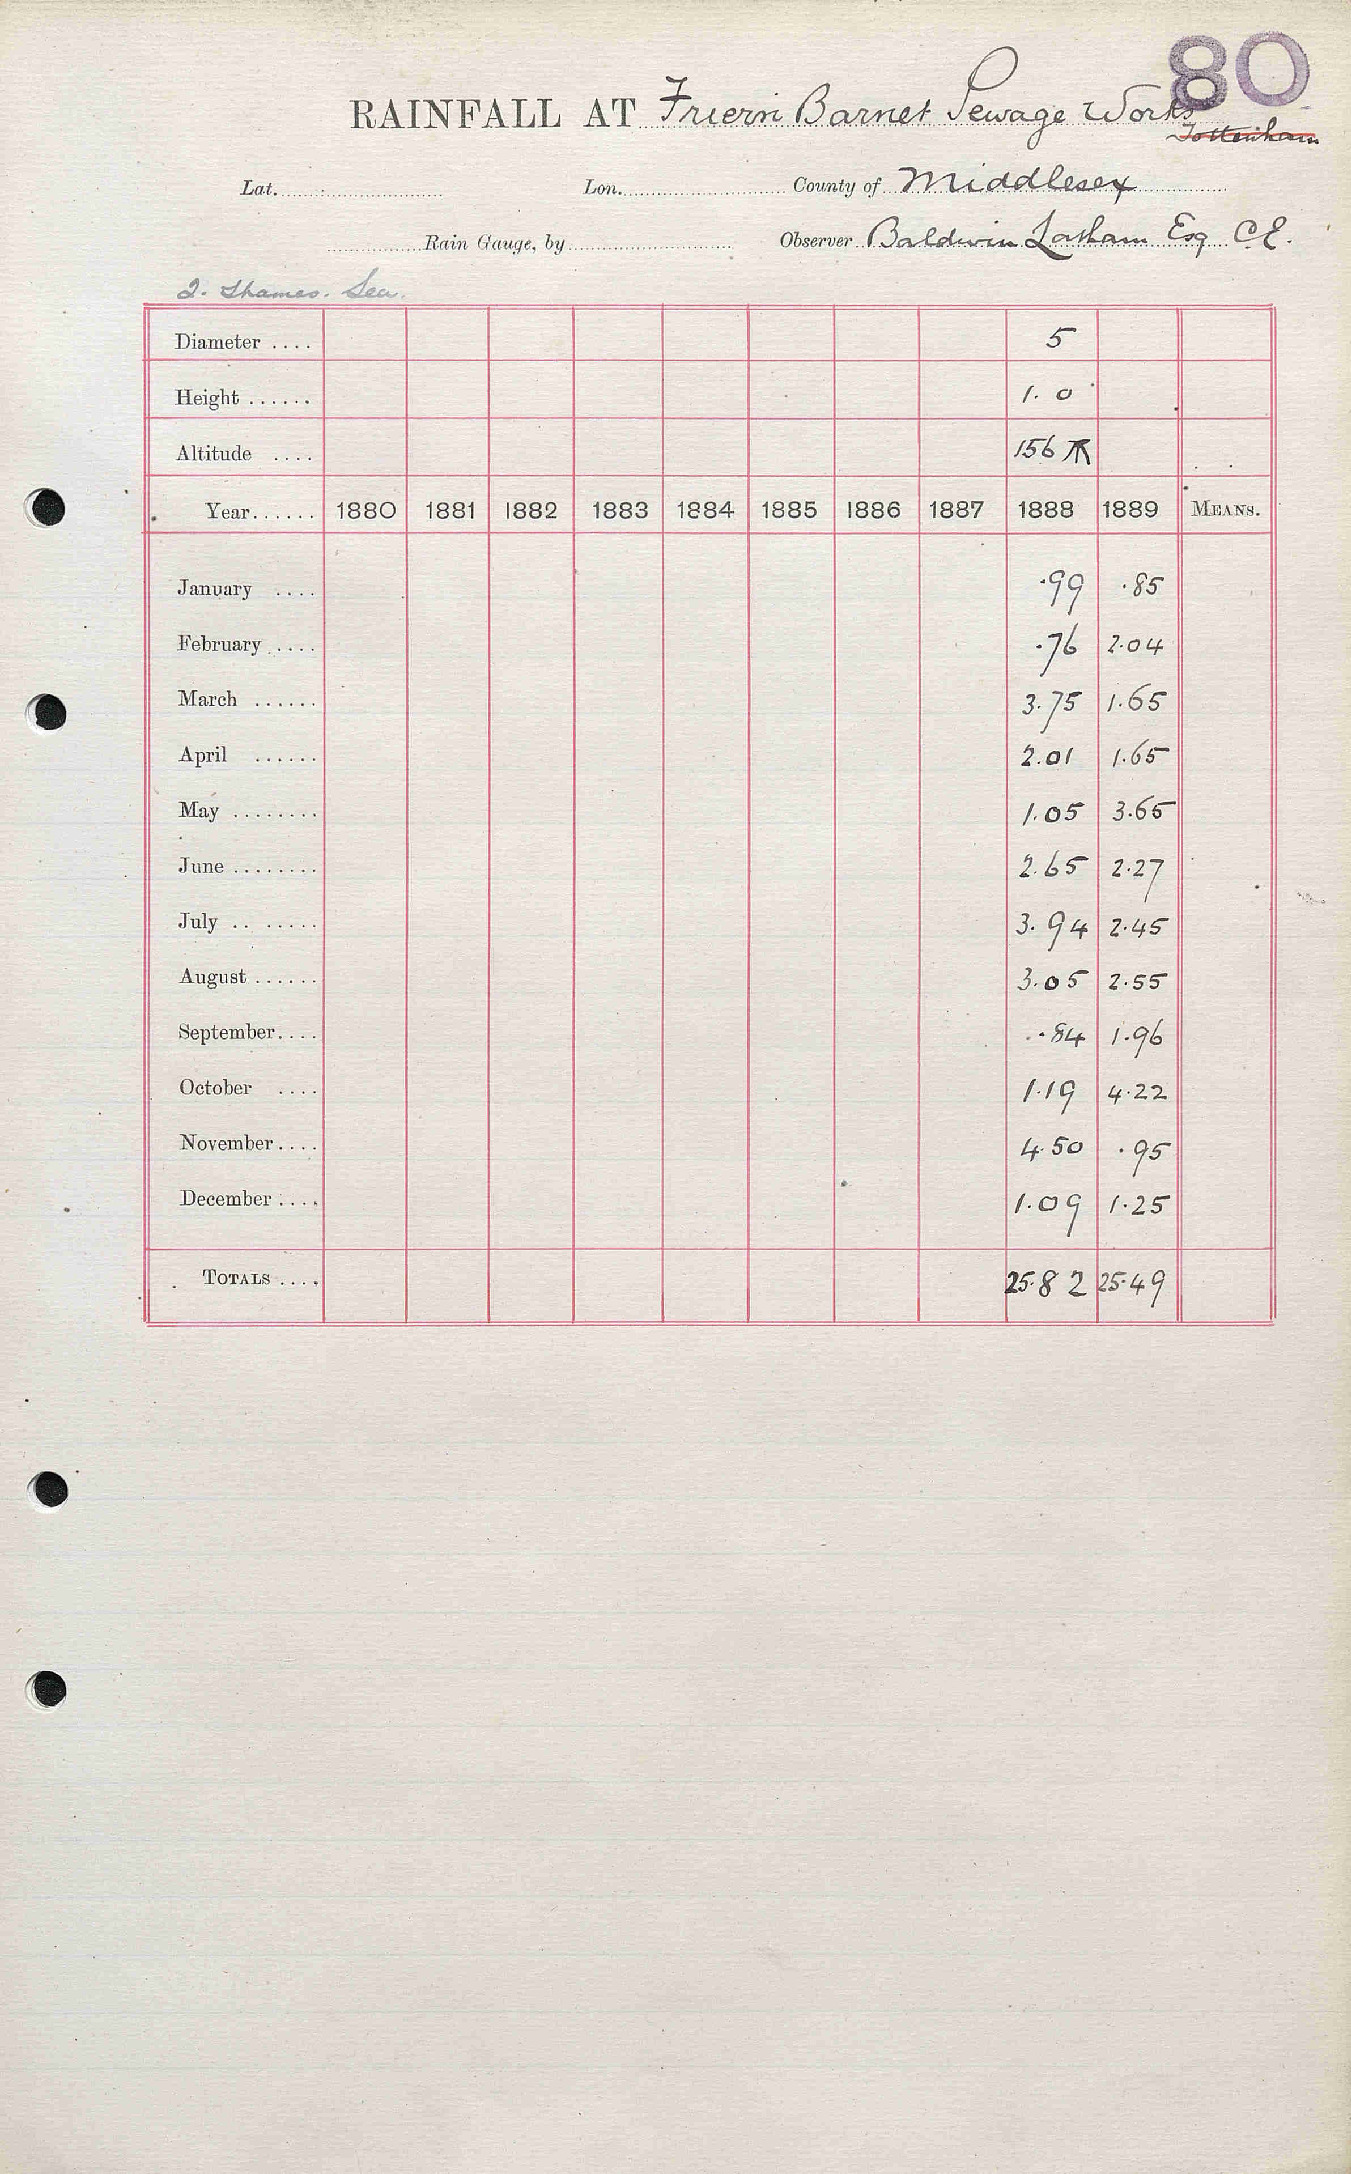 80
RAINFALL AT Friern Barnet Sewage Works
Tottenham
Lat. Lon. County of Middlesex
Rain Gauge, by Observer Baldwin Latham Esq C.E.
2. Thames. Sea.
Diameter .... 5
Height ...... 1. 0
Altitude .... 156
Year...... 1880 1881 1882 1883 1884 1885 1886 1887 1888 1889 MEANS.
January .... .99 .85
February .... .76 2.04
March ...... 3.75 1.65
April ...... 2.01 1.65
May ........ 1.05 3.65
June ........ 2.65 2.27
July .. ...... 3.94 2.45
August ...... 3.05 2.55
September.... .84 1.96
October .... 1.19 4.22
November.... 4.50 .95
December .... 1.09 1.25
TOTALS .... 25.82 25.49